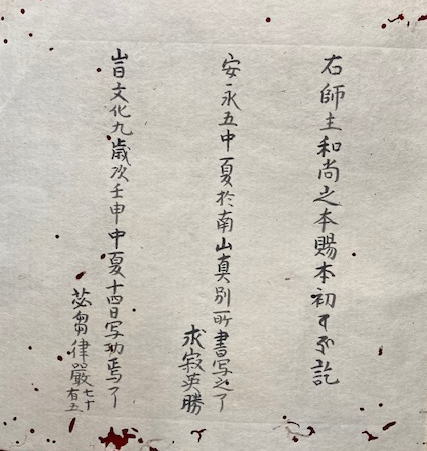 右師主和尚之本賜本初訖
安永五中夏於南山真別所書写之了
求寂英勝
旹文化九歳次壬申中夏十四日写功焉了
苾芻律嚴七十有五